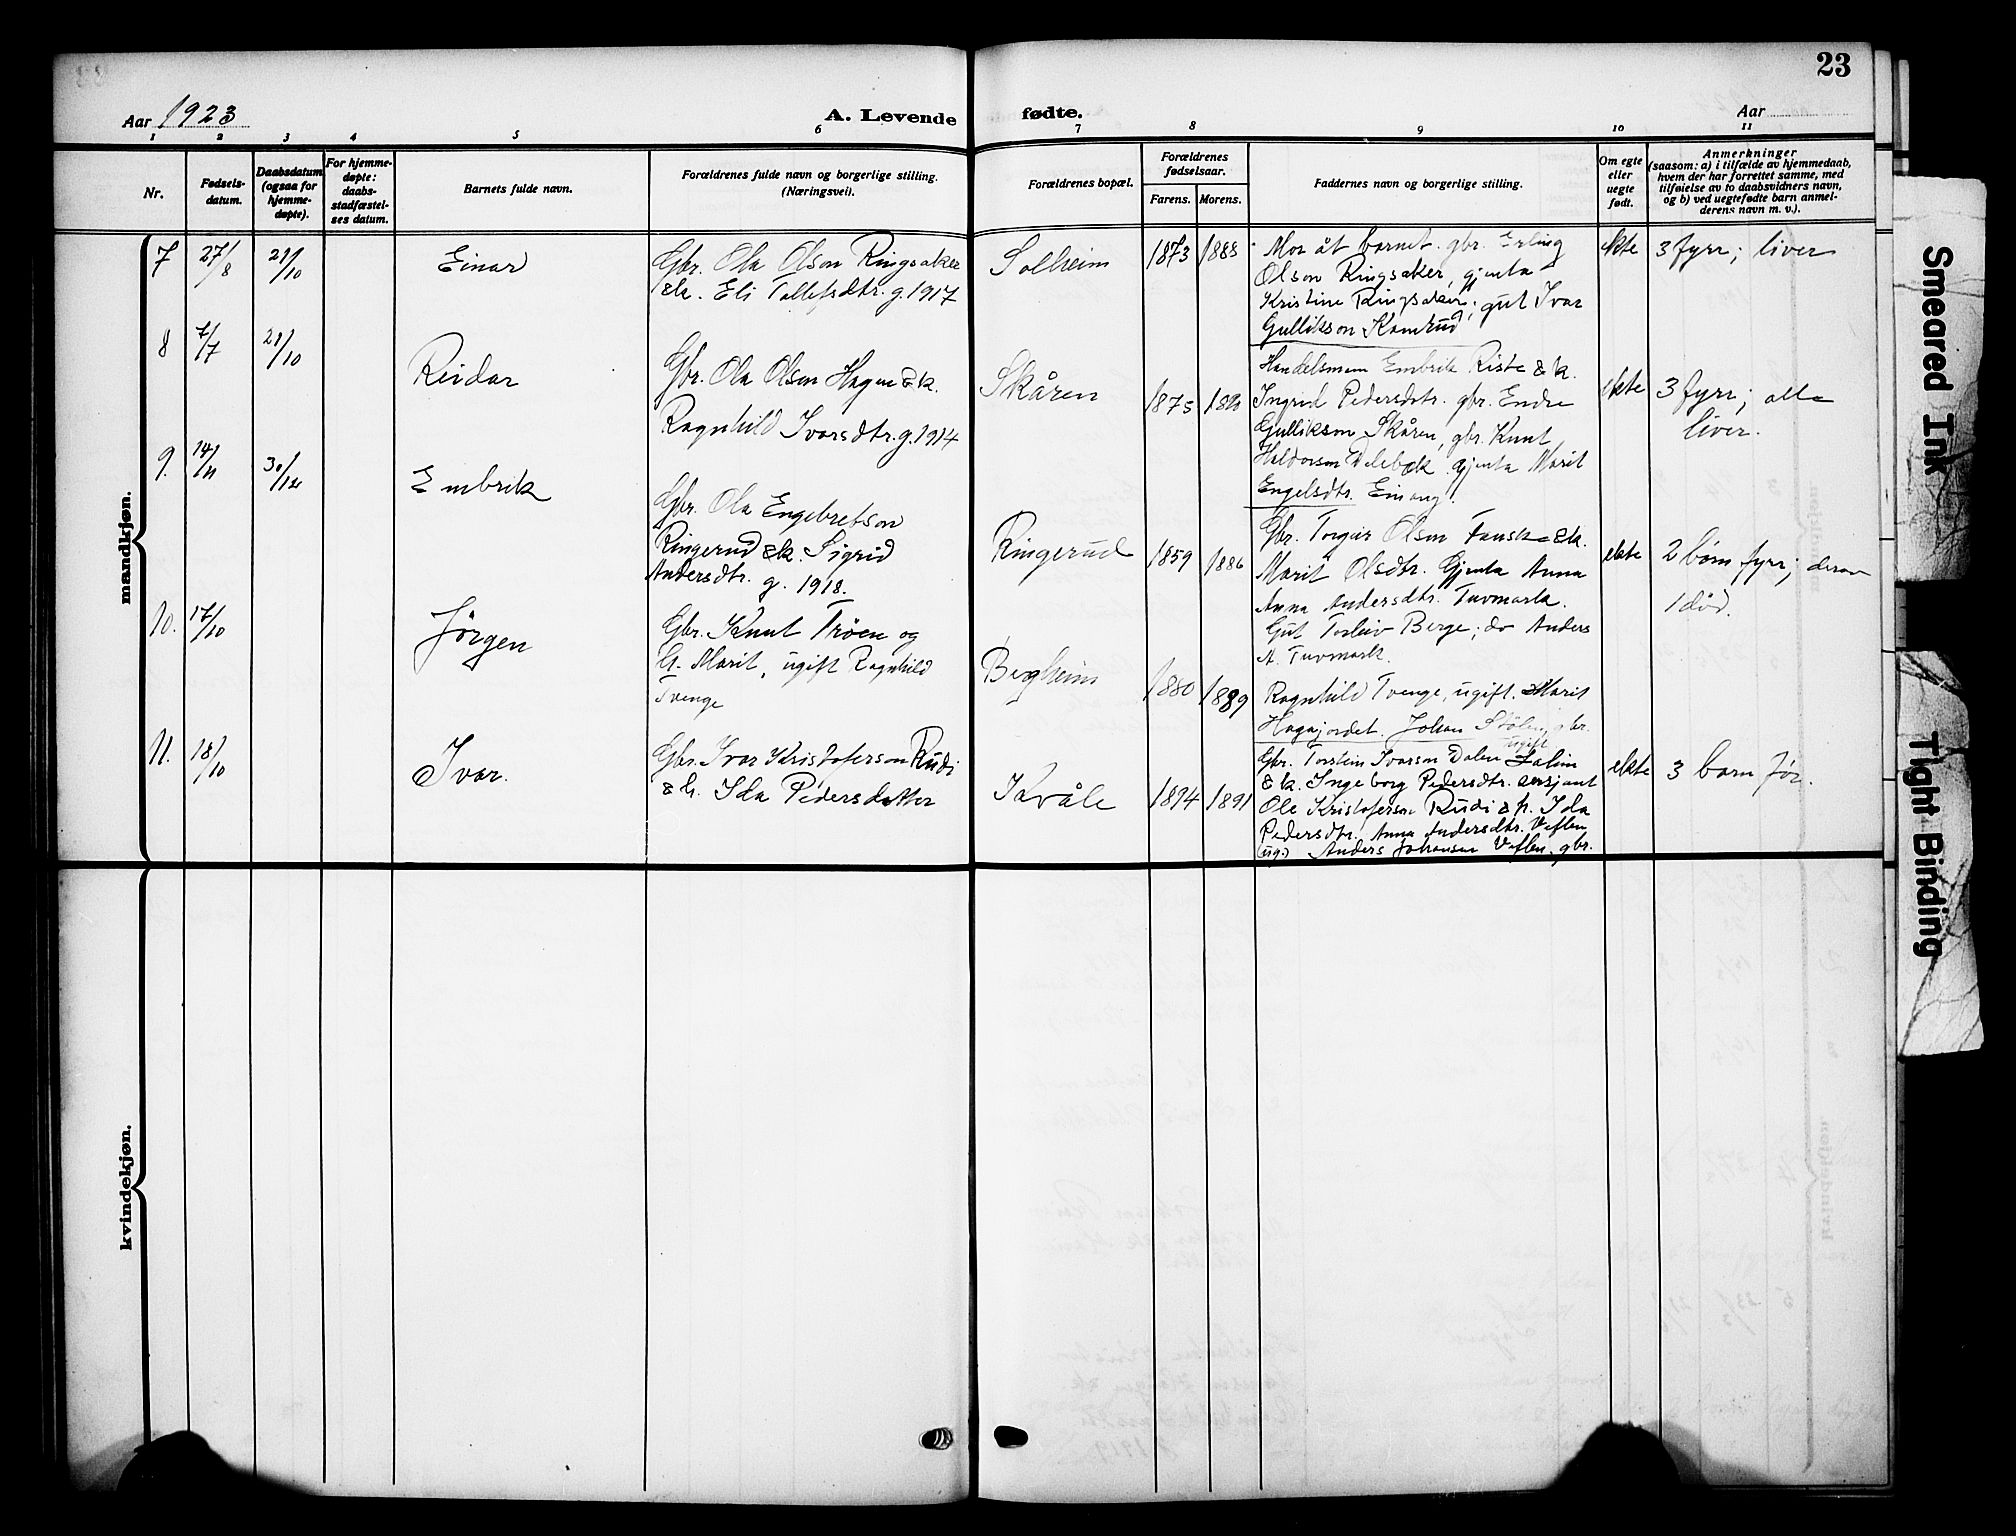 23
Aar 1923
A. Levende fødte.
Aar
1 2 3 4 5 6 7 8 9 10 11
Nr.
Fødsels-
datum.
Daabsdatum
(ogsaa for
hjemme-
døpte).
For hjemme-
døpte:
daabs-
stadfæstel-
ses datum.
Barnets fulde navn.
Forældrenes fulde navn og borgerlige stilling.
(Næringsvei).
Forældrenes bopæl.
Forældrenes
fødselsaar.
Farens. Morens.
Faddernes navn og borgerlige stilling.
Om egte
eller
uegte
født.
Anmerkninger
(saasom: a) i tilfælde av hjemmedaab,
hvem der har forrettet samme, med
tilføielse av to daabsvidners navn,
og b) ved uegtefødte barn anmel-
derens navn m. v.).
mandkjøn.
7 27/8 21/10
Einar
Gbr. Ola Olson Ringsaker
&k. Eli Tollefsdtr. g. 1917
Solheim
1873 1888
Mor åt barnet. gbr. Erling
Olson Ringsaker, gjenta
Kristine Ringsaker; gut Ivar
Gullikson Kamrud
ekte
3 fyrr; liver
8 7/7 21/10
Reidar
Gbr. Ola Olson Hagen &k.
Ragnhild Ivarsdtr. g. 1914
Skåren
1875 1880
Handelsmann Embrik Riste &k.
Ingrid Pedersdtr. gbr. Endre
Gullikson Skåren, gbr. Knut
Haldorson Delebæk gjenta Marit
Engelsdtr. Einang.
ekte
3 fyrr; alle
liver.
9. 14/11 30/12
Embrik
Gbr. Ola Engebretson
Ringerud &k. Sigrid
Andersdtr. g. 1918.
Ringerud
1859 1886
Gbr. Torgeir Olson Fausk &k.
Marit Olsdtr. Gjenta Anna
Anna Andersdtr. Tuvmark.
Gut Torleiv Berge; do Anders
A. Tuvmark.
ekte
2 børn fyrr; derav
1 død.
10. 17/10
Jørgen
Gbr. Knut Trøen og
h. Marit, ugift Ragnhild
Tvenge
Bergheim
1880 1889
Ragnhild Tvenge, ugift. Marit
Hagajordet. Johan Stølen, gbr.
ugift
11. 18/10
Ivar.
Gbr. Ivar Kristoferson Rudi
& h. Ida Pedersdatter
Kvåle
1894 1891
Gbr. Torstein Ivarson Dalen
& k. Ingeborg Pedersdtr. sersjant
Ole Kristoferson Rudi & h. Ida
Pedersdtr. Anna Andersdtr. Veflen
(ug.) Anders Johansen Veflen, gbr.
ekte
3 barn før.
kvindekjøn.
Smeared Ink
Tight Binding